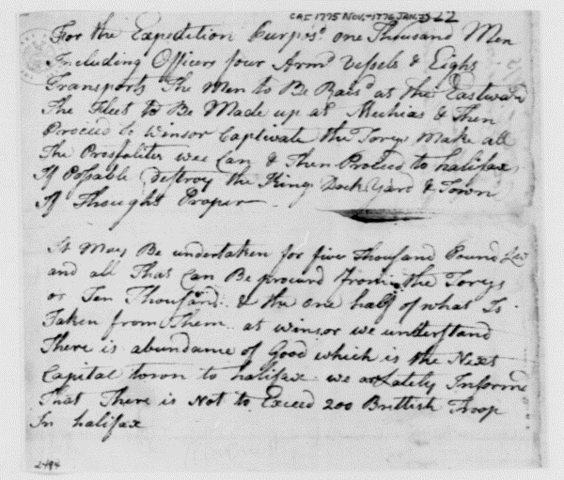 CAF 1775 NOV.-1776 JAN. 22
For the Expedition Purpos.d one Thousand Men
Including Officers four Arm.d Vessels & Eight
Transports The Men to Be Rais.d at the Eastward
The Fleet to Be Made up at Mechias & Then
Proceed to Winsor Captivate the Torys Make all
The Proseliters wee Can & Then Proceed to halifax
If Possable Destroy the King Dock Yard & Town
If Thought Proper
It May Be undertaken for five Thousand Pound LM
and all That Can Be procurd from the Torys
or Ten Thousand & the one half of what Is
Taken from Them at winsor we understand
There is abundance of Good which is the Next
Capital town to halifax we a Lately Informd
That There is Not to Exceed 200 Brittish Troop
In halifax
2494